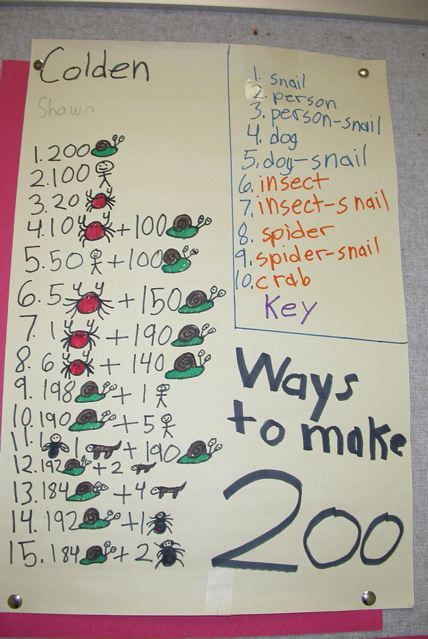 Colden
Shawn
1. 200
2. 100
3. 20
4. 10 + 100
5. 50 + 100
6. 5 + 150
7. 1 + 190
8. 6 + 140
9. 198 + 1
10. 190 + 5
11. 1 1 + 190
12. 192 + 2
13. 184 + 4
14. 192 + 1
15. 184 + 2
1. snail
2. person
3. person-snail
4. dog
5. dog-snail
6. insect
7. insect-snail
8. spider
9. spider-snail
10. crab
Key
Ways
to make
200